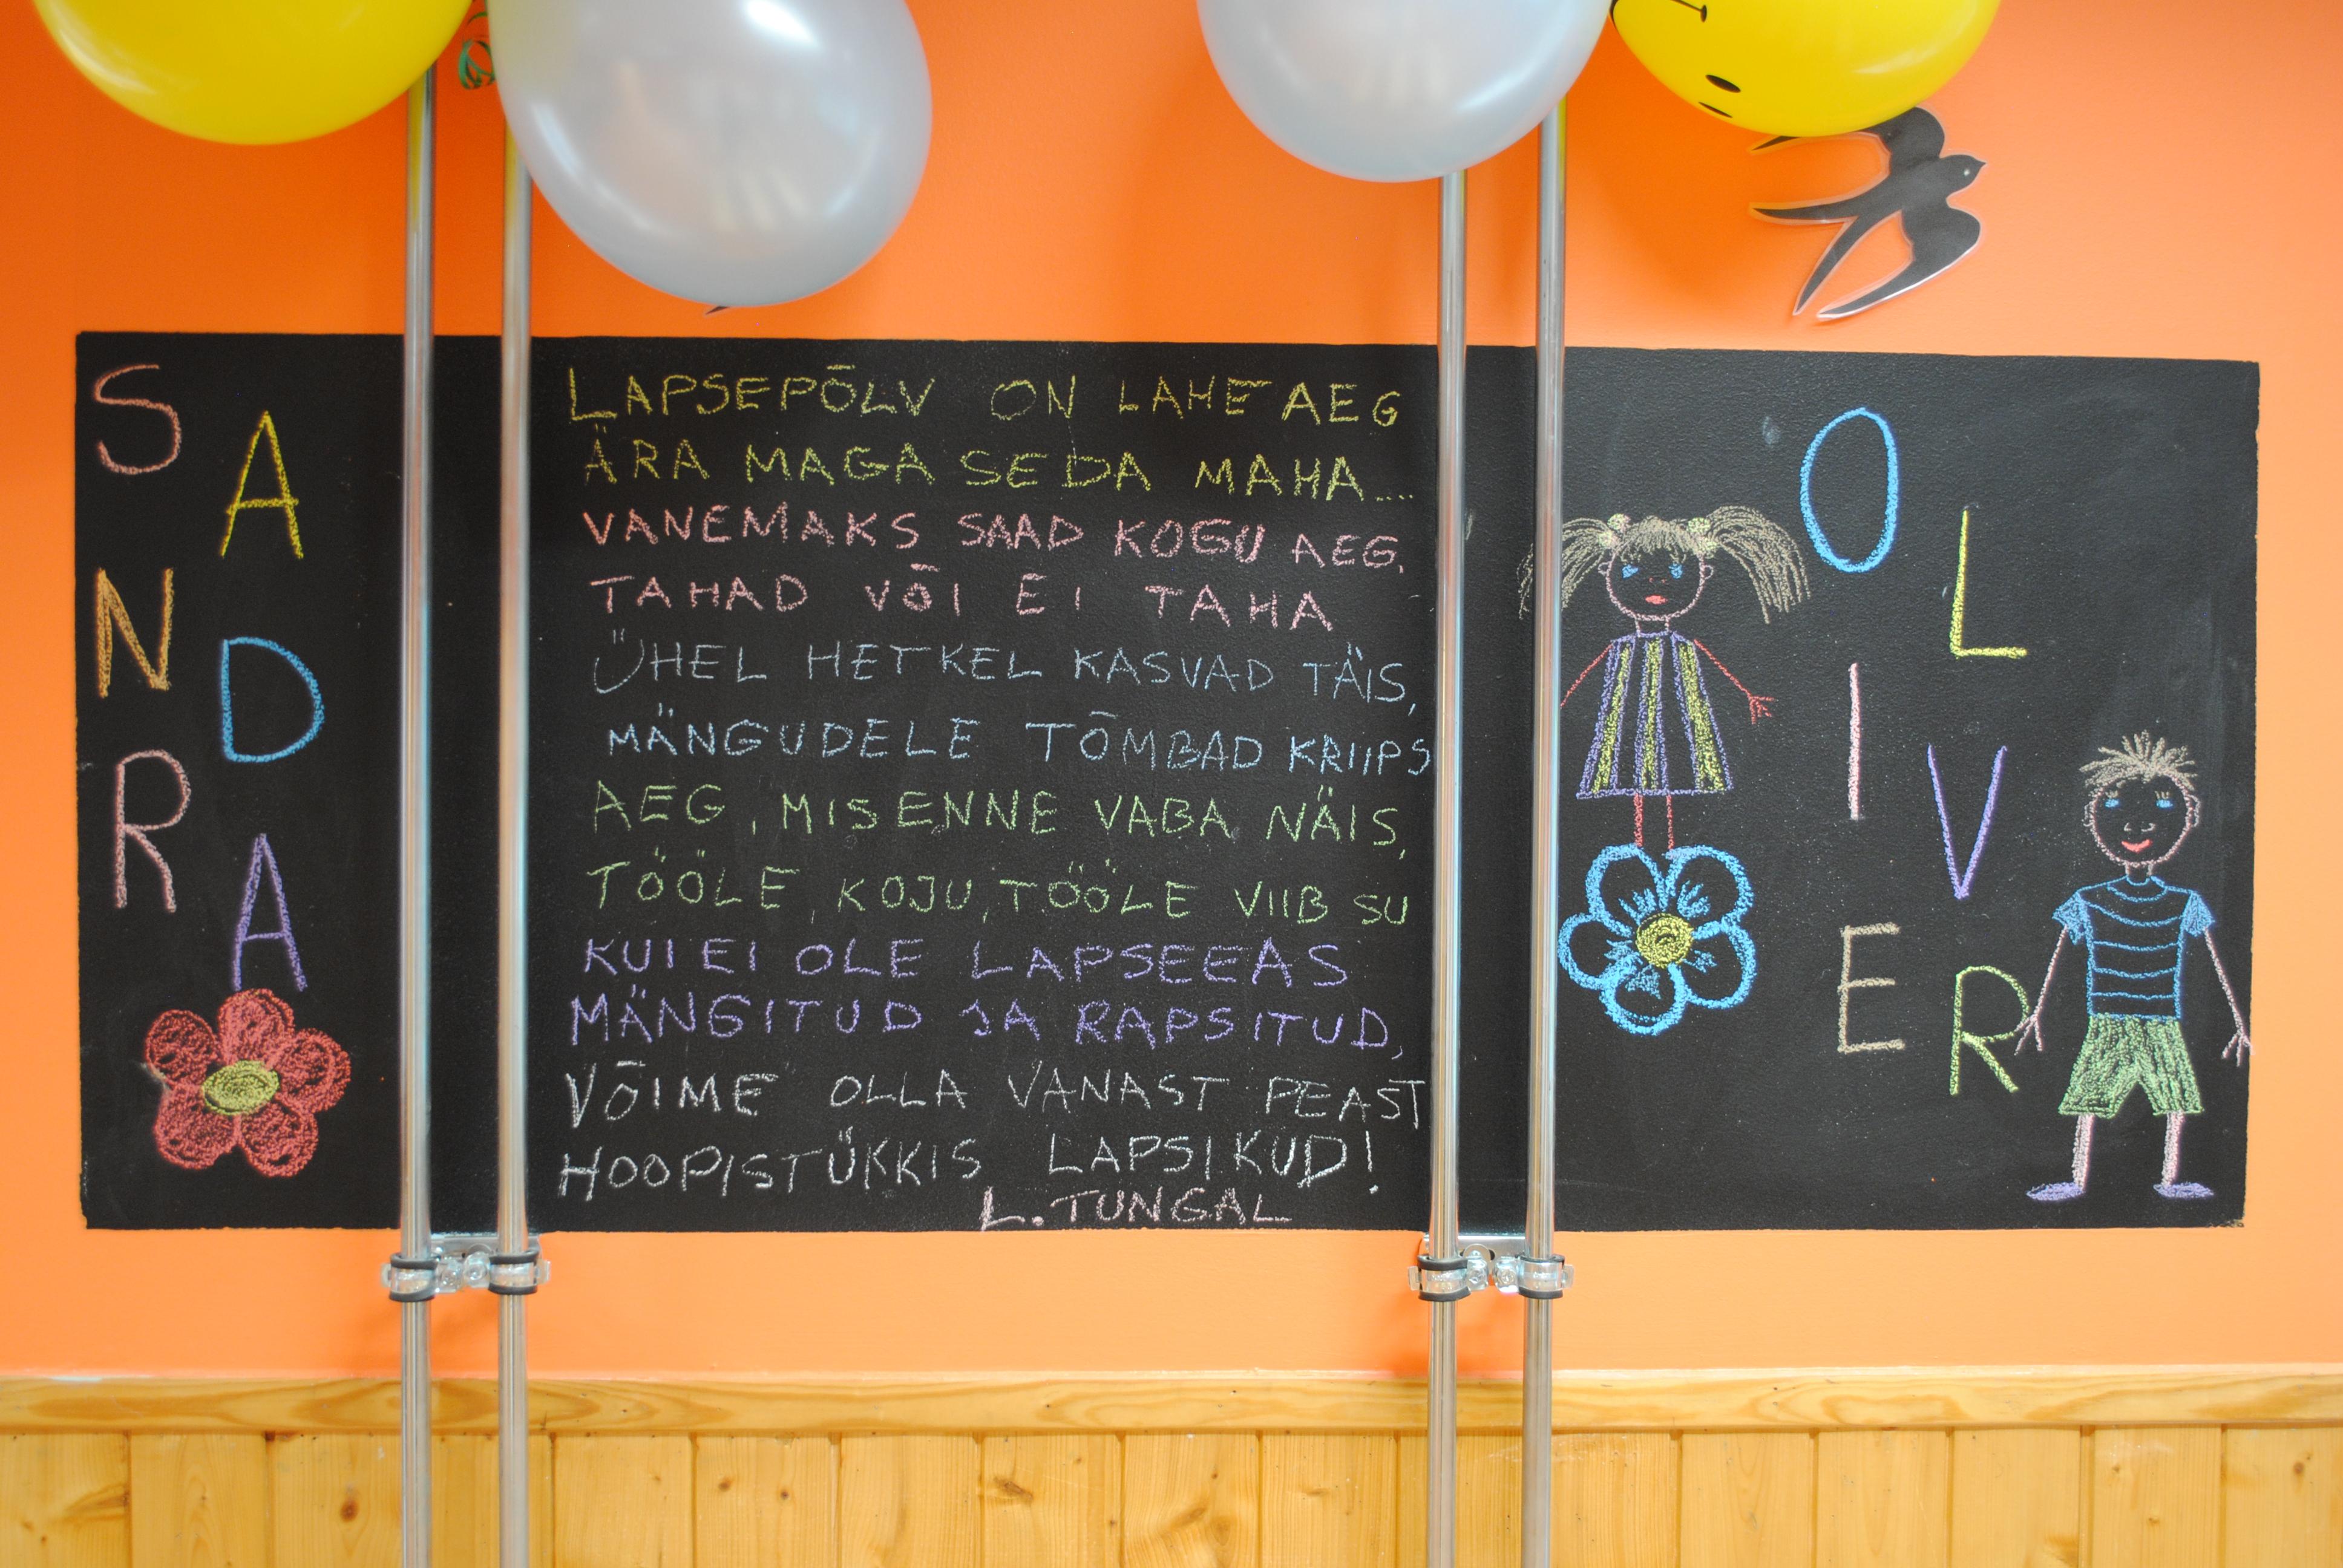 SANDRA
LAPSEPÕLV ON LAHE AEG
ÄRA MAGA SEDA MAHA....
VANEMAKS SAAD KOGU AEG,
TAHAD VÕI EI TAHA
ÜHEL HETKEL KASVAD TÄIS,
MÄNGUDELE TÕMBAD KRIIPS
AEG, MIS ENNE VABA NÄIS,
TÖÖLE, KOJU, TÖÖLE VIIB SU
KUI EI OLE LAPSEEAS
MÄNGITUD JA RAPSITUD,
VÕIME OLLA VANAST PEAST
HOOPISTÜKKIS LAPSIKUD!
L. TUNGAL
OLIVER